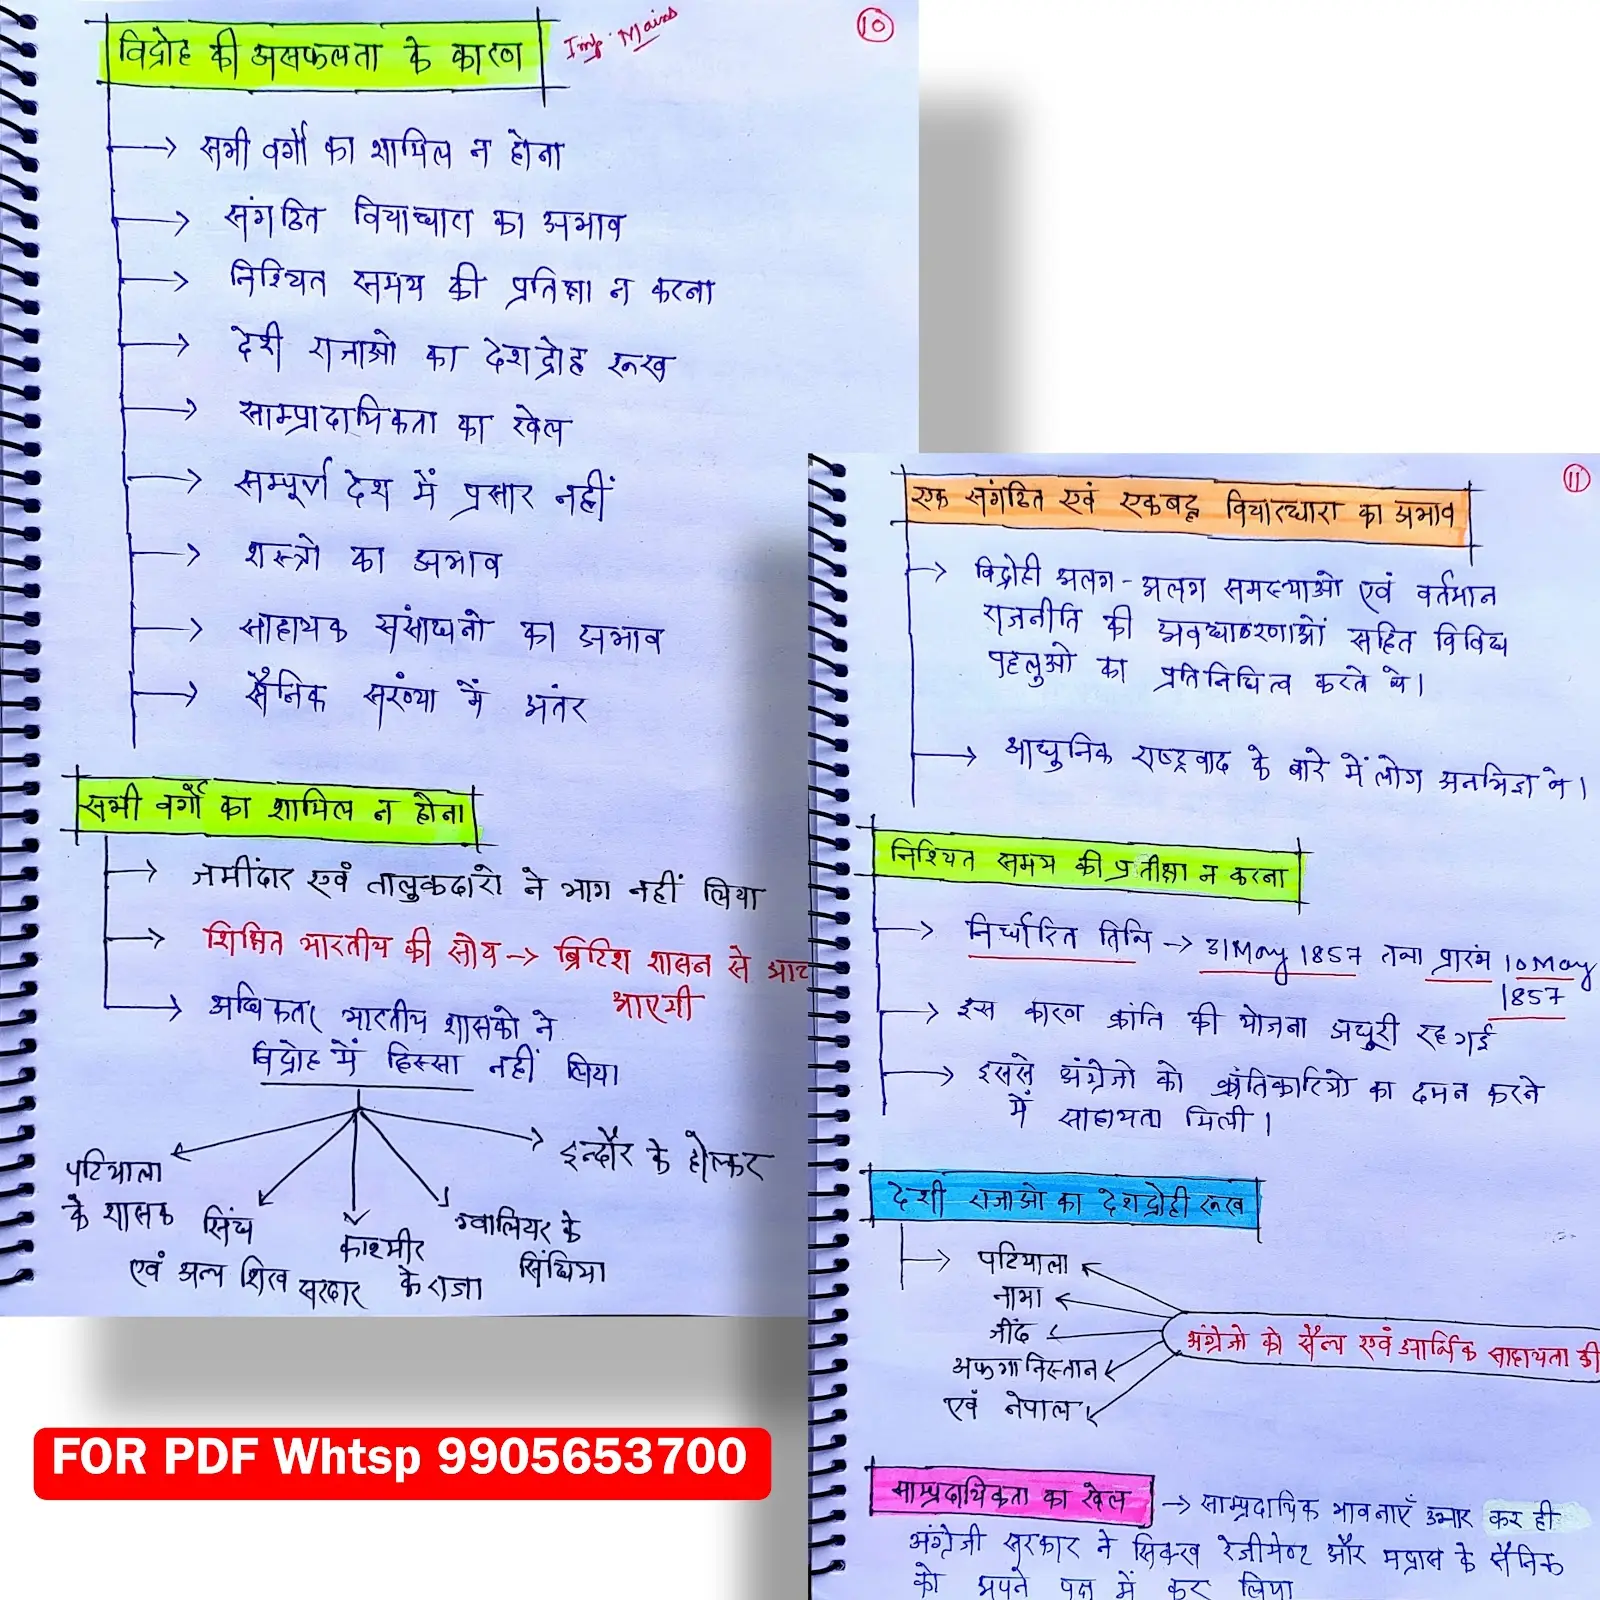 10
विद्रोह की असफलता के कारण
Imp. Mains
सभी वर्गो का शामिल न होना
संगठित विचारधारा का अभाव
निश्चित समय की प्रतिक्षा न करना
देशी राजाओ का देशद्रोह रूख
साम्प्रादायिकता का खेल
सम्पूर्ण देश में प्रसार नहीं
शस्त्रो का अभाव
सहायक संसाधनो का अभाव
सैनिक संख्या में अंतर
सभी वर्गो का शामिल न होना
जमींदार एवं तालुकदारो ने भाग नहीं लिया
शिक्षित भारतीय की सोच → ब्रिटिश शासन से
आएगी
अधिकतर भारतीय शासको ने
विद्रोह में हिस्सा नहीं लिया
पटियाला
के शासक
सिंध
एवं अन्य सिख सरदार
काश्मीर
के राजा
ग्वालियर के
सिंधिया
इन्दौर के होल्कर
FOR PDF Whtsp 9905653700
11
एक संगठित एवं एकबद्ध विचारधारा का अभाव
विद्रोही अलग-अलग समस्याओ एवं वर्तमान
राजनीति की अवधारणाओं सहित विविध
पहलुओ का प्रतिनिधित्व करते थे।
आधुनिक राष्ट्रवाद के बारे में लोग अनभिज्ञ थे।
निश्चित समय की प्रतीक्षा न करना
निर्धारित तिथि → 31 May 1857 तथा प्रारंभ 10 May
1857
इस कारण क्रांति की योजना अधुरी रह गई
इससे अंग्रेजो को क्रांतिकारियो का दमन करने
में सहायता मिली।
देशी राजाओ का देशद्रोही रूख
पटियाला
नाभा
जींद
अफगानिस्तान
एवं नेपाल
अंग्रेजो को सैन्य एवं आर्थिक सहायता की
साम्प्रदायिकता का खेल → साम्प्रदायिक भावनाएँ उभार कर ही
अंग्रेजी सरकार ने सिक्ख रेजीमेण्ट और मद्रास के सैनिक
को अपने पक्ष में कर लिया